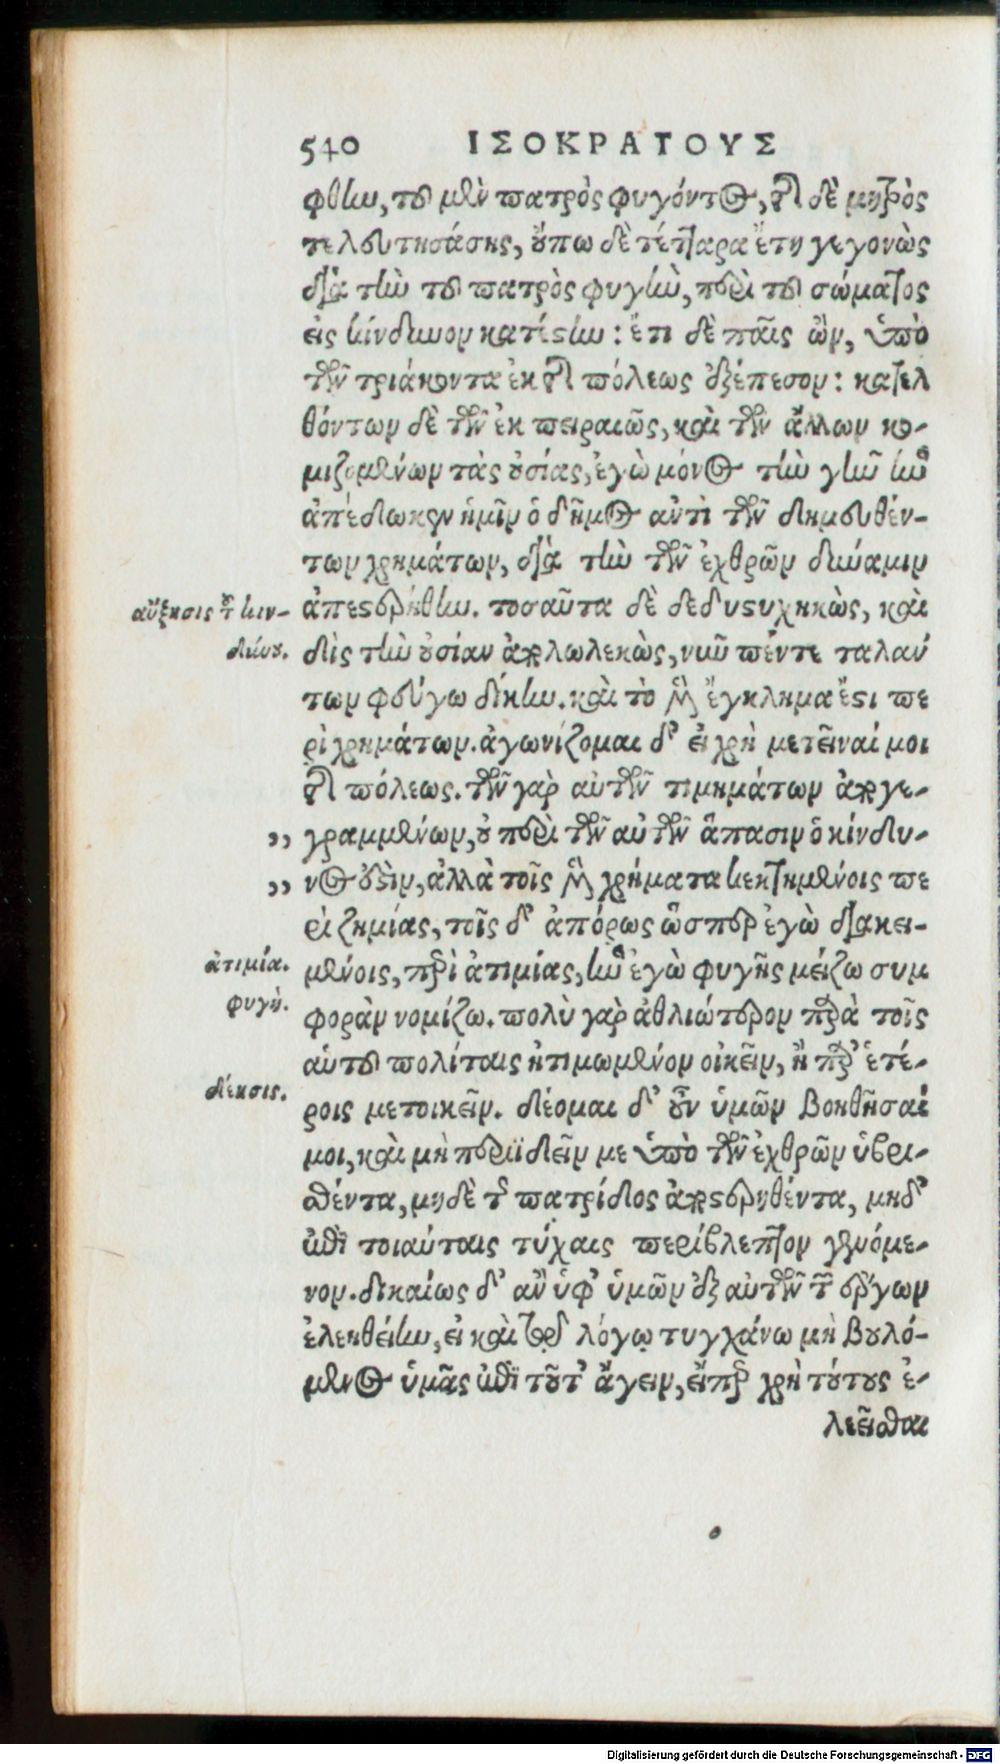 540 ΙΣΟΚΡΑΤΟΥΣ
φθην, τοῦ μὲν πατρὸς φυγόντος, τῆς δὲ μητρὸς
τελευτησάσης, οὔπω δὲ τέτταρα ἔτη γεγονὼς
διὰ τὴν τοῦ πατρὸς φυγὴν, περὶ τοῦ σώματος
εἰς κίνδυνον κατέστην: ἔτι δὲ παῖς ὢν, ὑπὸ
τῶν τριάκοντα ἐκ τῆς πόλεως ἐξέπεσον: κατελ
θόντων δὲ τῶν ἐκ πειραιῶς, καὶ τῶν ἄλλων κο-
μιζομένων τὰς οὐσίας, ἐγὼ μόνος τὴν γῆν ἣν
ἀπέδωκεν ἡμῖν ὁ δῆμος ἀντὶ τῶν δημευθέν-
των χρημάτων, διὰ τὴν τῶν ἐχθρῶν δύναμιν
αὔξησις τοῦ κιν-
ἀπεστερήθην. τοσαῦτα δὲ δεδυστυχηκὼς, καὶ
δύνου.
δὶς τὴν οὐσίαν ἀπολωλεκὼς, νυνὶ πέντε ταλάν
των φεύγω δίκην. καὶ τὸ μὲν ἔγκλημα ἔστι πε
ρὶ χρημάτων. ἀγωνίζομαι δ' εἰ χρὴ μετεῖναί μοι
τῆς πόλεως. τῶν γὰρ αὐτῶν τιμημάτων ἀπογε-
„ γραμμένων, οὐ περὶ τῶν αὐτῶν ἅπασιν ὁ κίνδυ-
„ νος ἐστὶν, ἀλλὰ τοῖς μὲν χρήματα κεκτημένοις πε
ρὶ ζημίας, τοῖς δ' ἀπόρως ὥσπερ ἐγὼ διακει-
ἀτιμία.
μένοις, περὶ ἀτιμίας, ἣν ἐγὼ φυγῆς μείζω συμ
φυγή.
φορὰν νομίζω. πολὺ γὰρ ἀθλιώτερον παρὰ τοῖς
αὑτοῦ πολίταις ἠτιμωμένον οἰκεῖν, ἢ παρ' ἑτέ-
δέησις.
ροις μετοικεῖν. δέομαι δ' οὖν ὑμῶν βοηθῆσαί
μοι, καὶ μὴ περιϊδεῖν με ὑπὸ τῶν ἐχθρῶν ὑβρι-
σθέντα, μηδὲ τῆς πατρίδος ἀποστερηθέντα, μηδ'
ἐπὶ τοιαύταις τύχαις περίβλεπτον γενόμε-
νον. δικαίως δ' ἂν ὑφ' ὑμῶν ἐξ αὐτῶν τῶν ἔργων
ἐλεηθείην, εἰ καὶ τῷ λόγῳ τυγχάνω μὴ βουλό-
μενος ὑμᾶς ἐπὶ τοῦτ' ἄγειν, εἴπερ χρὴ τούτους ἐ-
λεεῖσθαι
Digitalisierung gefördert durch die Deutsche Forschungsgemeinschaft - DFG